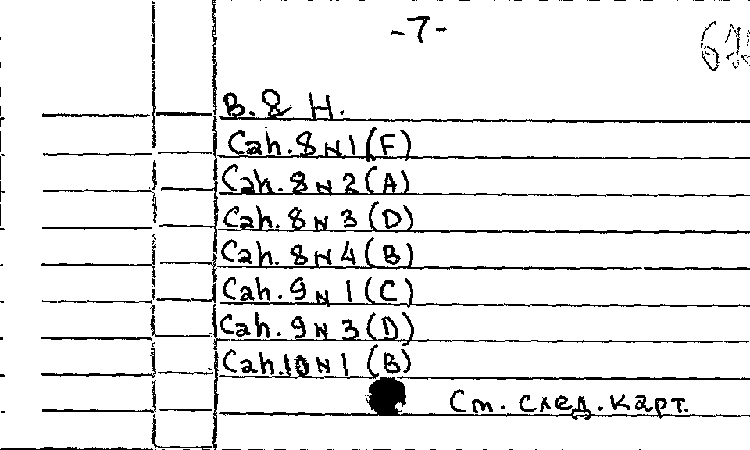 -7-
B. & H.
Cah. 8 N 1 (F)
Cah. 8 N 2 (A)
Cah. 8 N 3 (D)
Cah. 8 N 4 (B)
Cah. 9 N 1 (C)
Cah. 9 N 3 (D)
Cah. 10 N 1 (B)
См. след. карт.